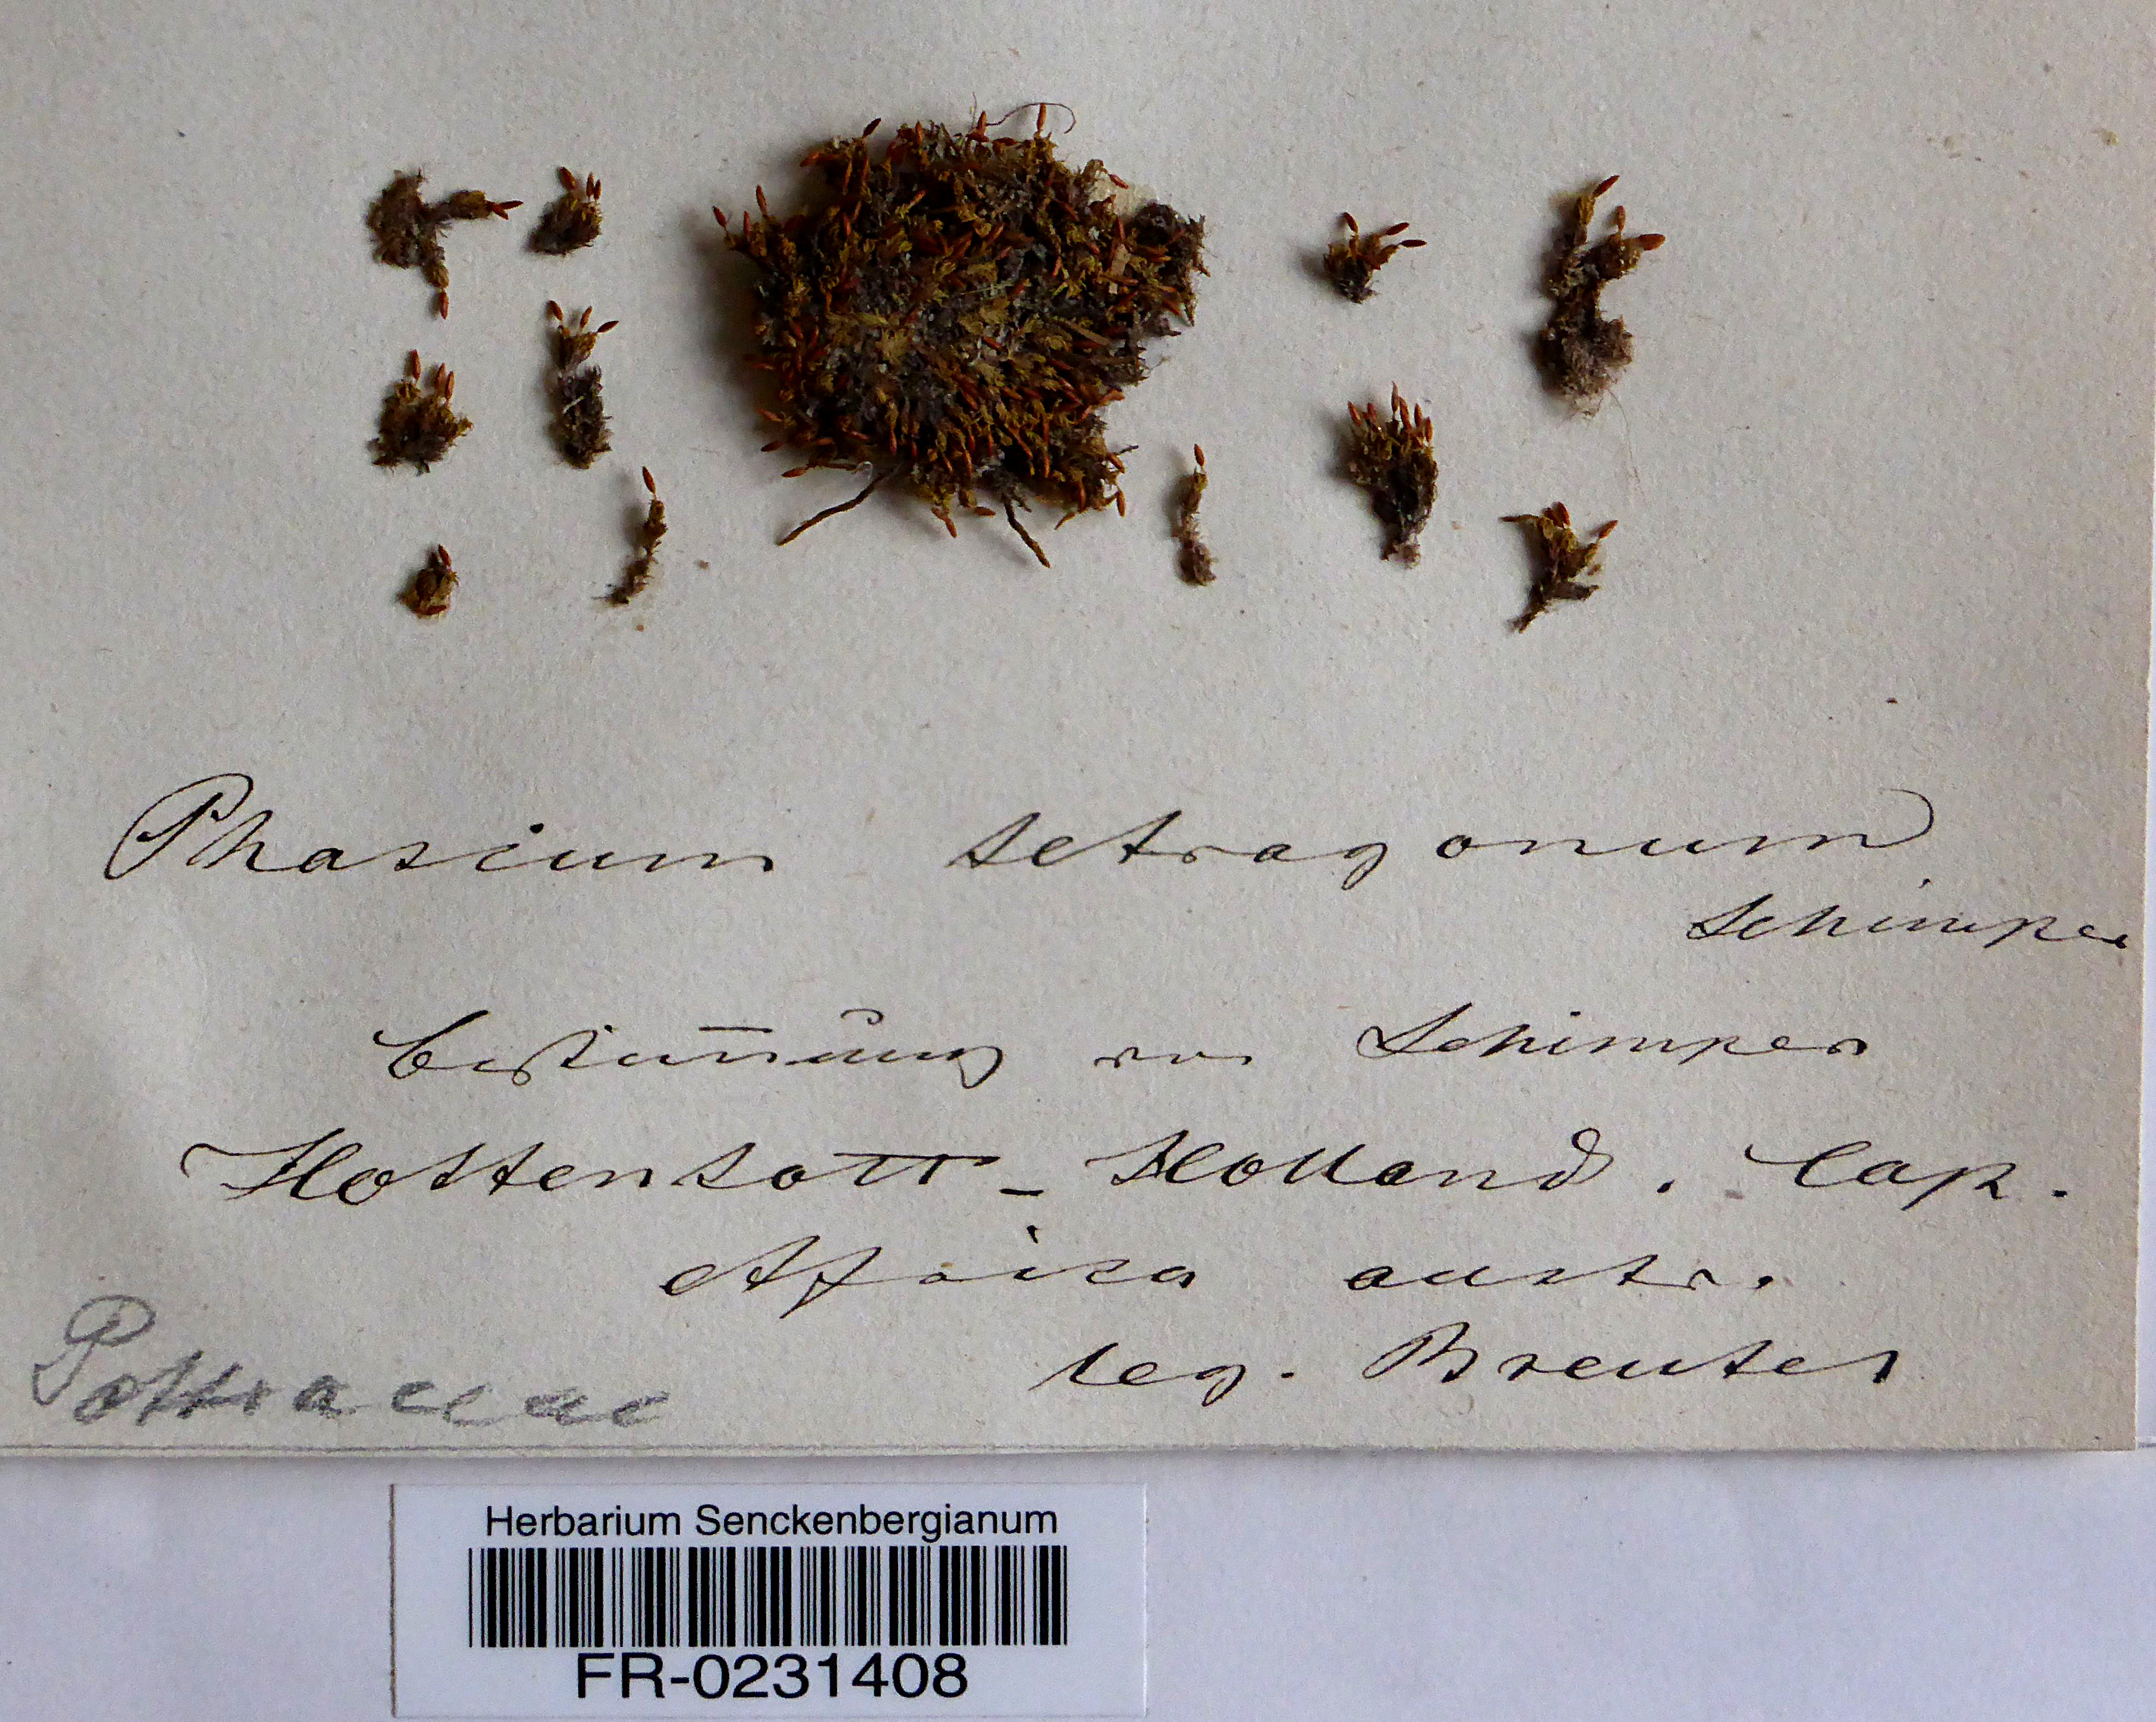 Phascum tetragonum
Schimper
Bestim̄ung von Schimper
Hottentott-Holland. Cap.
Africa austr.
leg. Breutel
Pottiaceae
Herbarium Senckenbergianum
FR-0231408